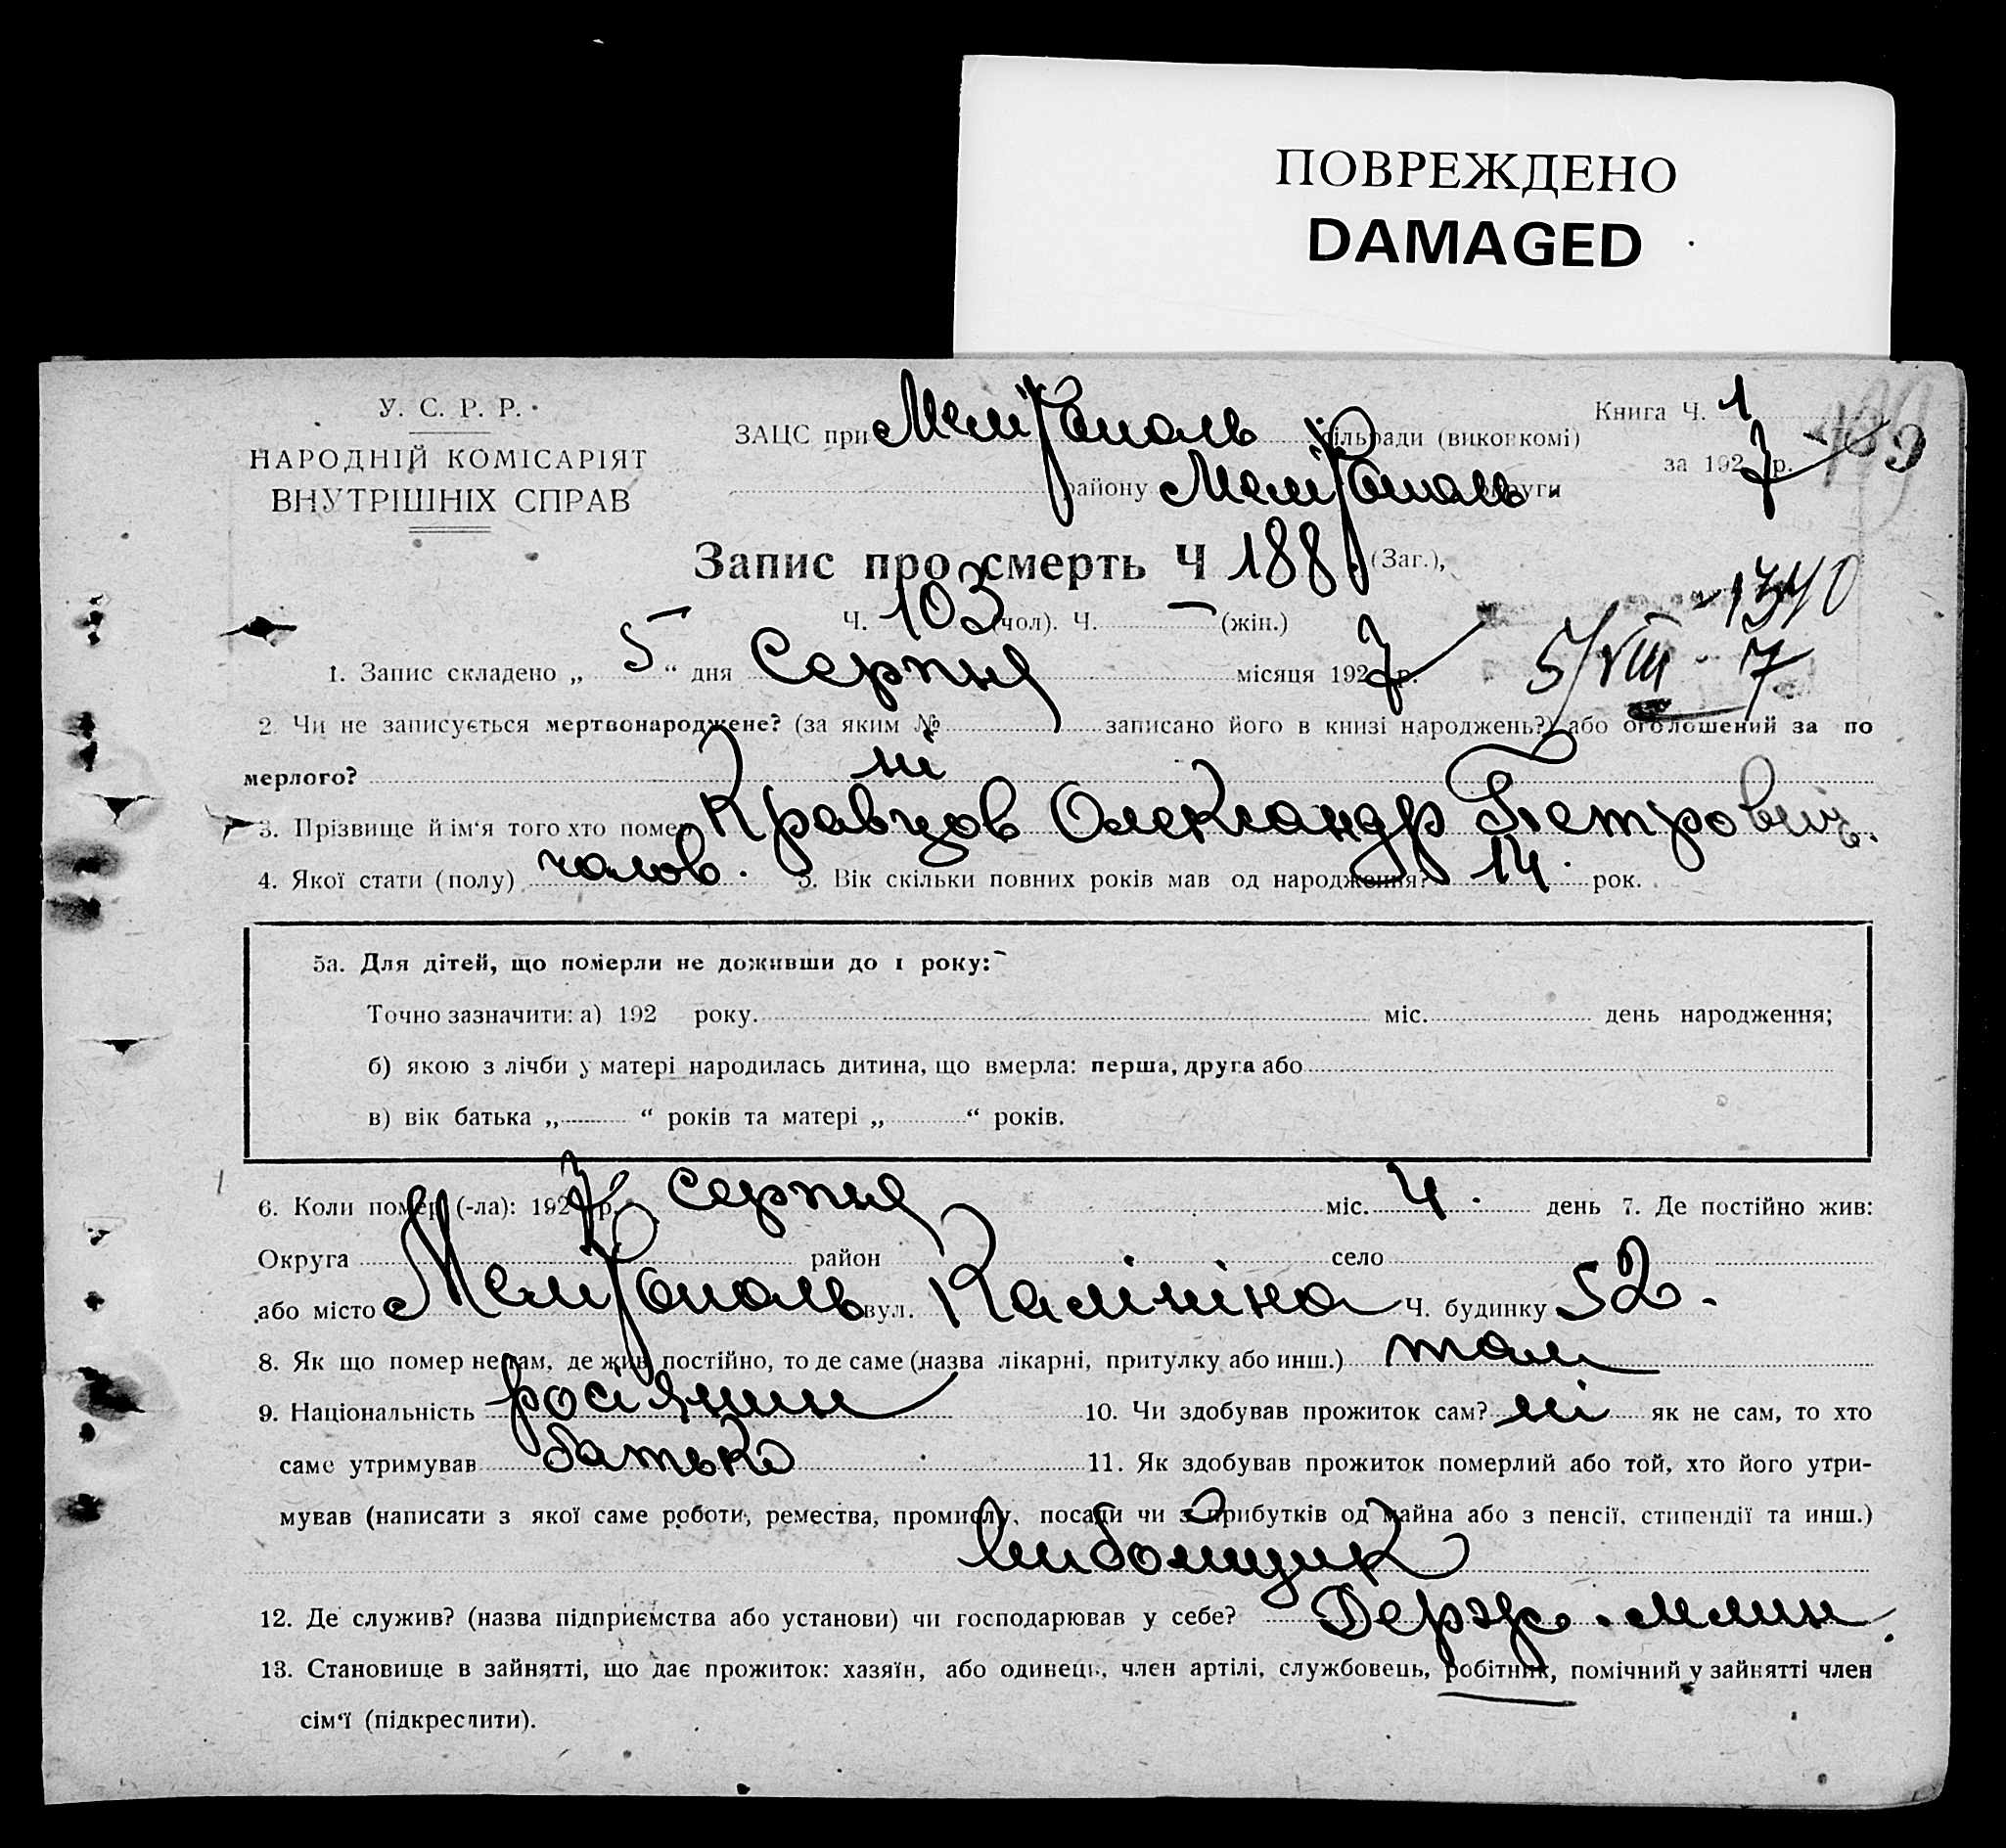 ПОВРЕЖДЕНО
DAMAGED
У. С. Р. Р.
НАРОДНІЙ КОМІСАРІЯТ
ВНУТРІШНІХ СПРАВ
ЗАЦС при Мелітополь сільради (виконкомі)
району Мелітополь округи
Книга Ч. 1
за 1927 р.
Запис про смерть Ч 188 (Заг.),
Ч. 103 (чол). Ч. — (жін.)
1340
5/VIII - 7
1. Запис складено „ 5 “ дня Серпня місяця 1927 р.
2. Чи не записується мертвонароджене? (за яким № записано його в книзі народжень?) або оголошений за по
мерлого? ні
3. Прізвище й ім'я того хто помер Кравцов Олександр Петрович.
4. Якої стати (полу) чолов. 5. Вік скільки повних років мав од народження? 14. рок.
5а. Для дітей, що померли не доживши до 1 року:
Точно зазначити: а) 192 року. міс. день народження;
б) якою з лічби у матері народилась дитина, що вмерла: перша, друга або
в) вік батька „ “ років та матері „ “ років.
6. Коли помер (-ла): 1927 р. Серпня міс. 4. день 7. Де постійно жив:
Округа район село
або місто Мелітополь вул. Калініна Ч. будинку 52.
8. Як що помер не там, де жив постійно, то де саме (назва лікарні, притулку або инш.) там
9. Національність росіянин 10. Чи здобував прожиток сам? ні як не сам, то хто
саме утримував батько 11. Як здобував прожиток померлий або той, хто його утри-
мував (написати з якої саме роботи, ремества, промислу, посади чи з прибутків од майна або з пенсії, стипендії та инш.)
12. Де служив? (назва підприємства або установи) чи господарював у себе? Держ. млин.
13. Становище в зайнятті, що дає прожиток: хазяїн, або одинець, член артілі, службовець, робітник, помічний у зайнятті член
сім'ї (підкреслити).